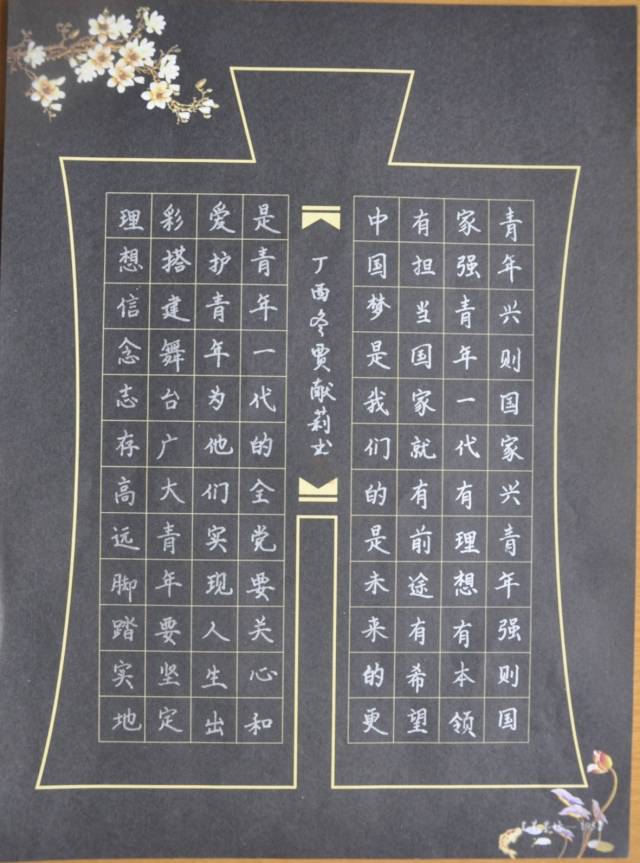 青年兴则国家兴青年强则国
家强青年一代有理想有本领
有担当国家就有前途有希望
中国梦是我们的是未来的更
是青年一代的全党要关心和
爱护青年为他们实现人生出
彩搭建舞台广大青年要坚定
理想信念志存高远脚踏实地
丁酉冬贾献莉书